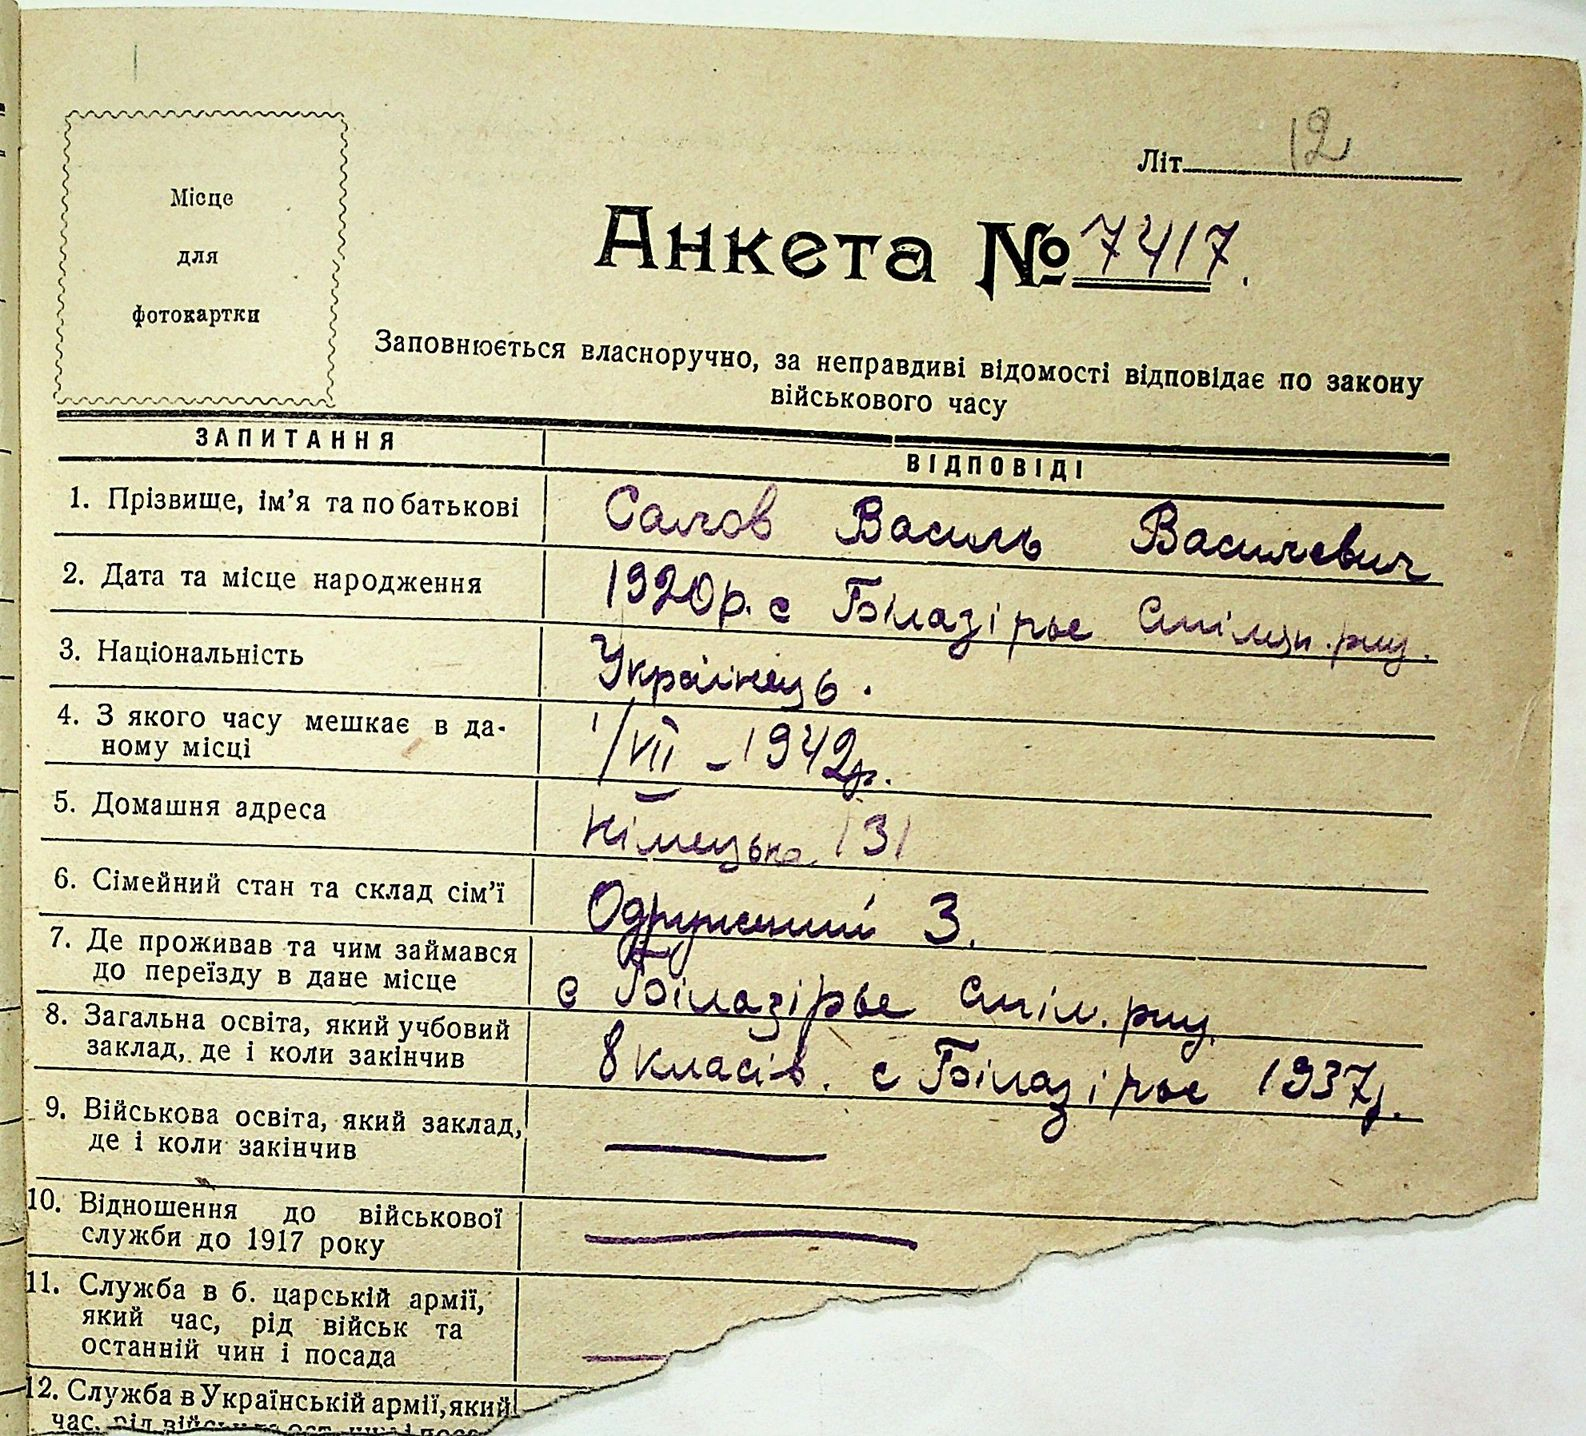 Літ. 12
Місце
для
фотокартки
Анкета № 7417.
Заповнюється власноручно, за неправдиві відомості відповідає по закону
військового часу
ЗАПИТАННЯ ВІДПОВІДІ
1. Прізвище, ім'я та по батькові Салов Василь Василевич
2. Дата та місце народження 1920р. с Білазірье Смілян. рищ.
3. Національність Українець.
4. З якого часу мешкає в да-
ному місці 1/VII – 1942р.
5. Домашня адреса Німецька 131
6. Сімейний стан та склад сім'ї Одружений 3.
7. Де проживав та чим займався
до переїзду в дане місце с Білазірье Сміл. рищ.
8. Загальна освіта, який учбовий
заклад, де і коли закінчив 8 класів. с Білазірье 1937р.
9. Військова освіта, який заклад,
де і коли закінчив —
10. Відношення до військової
служби до 1917 року —
11. Служба в б. царській армії,
який час, рід військ та
останній чин і посада —
12. Служба в Українській армії, який
час, рід